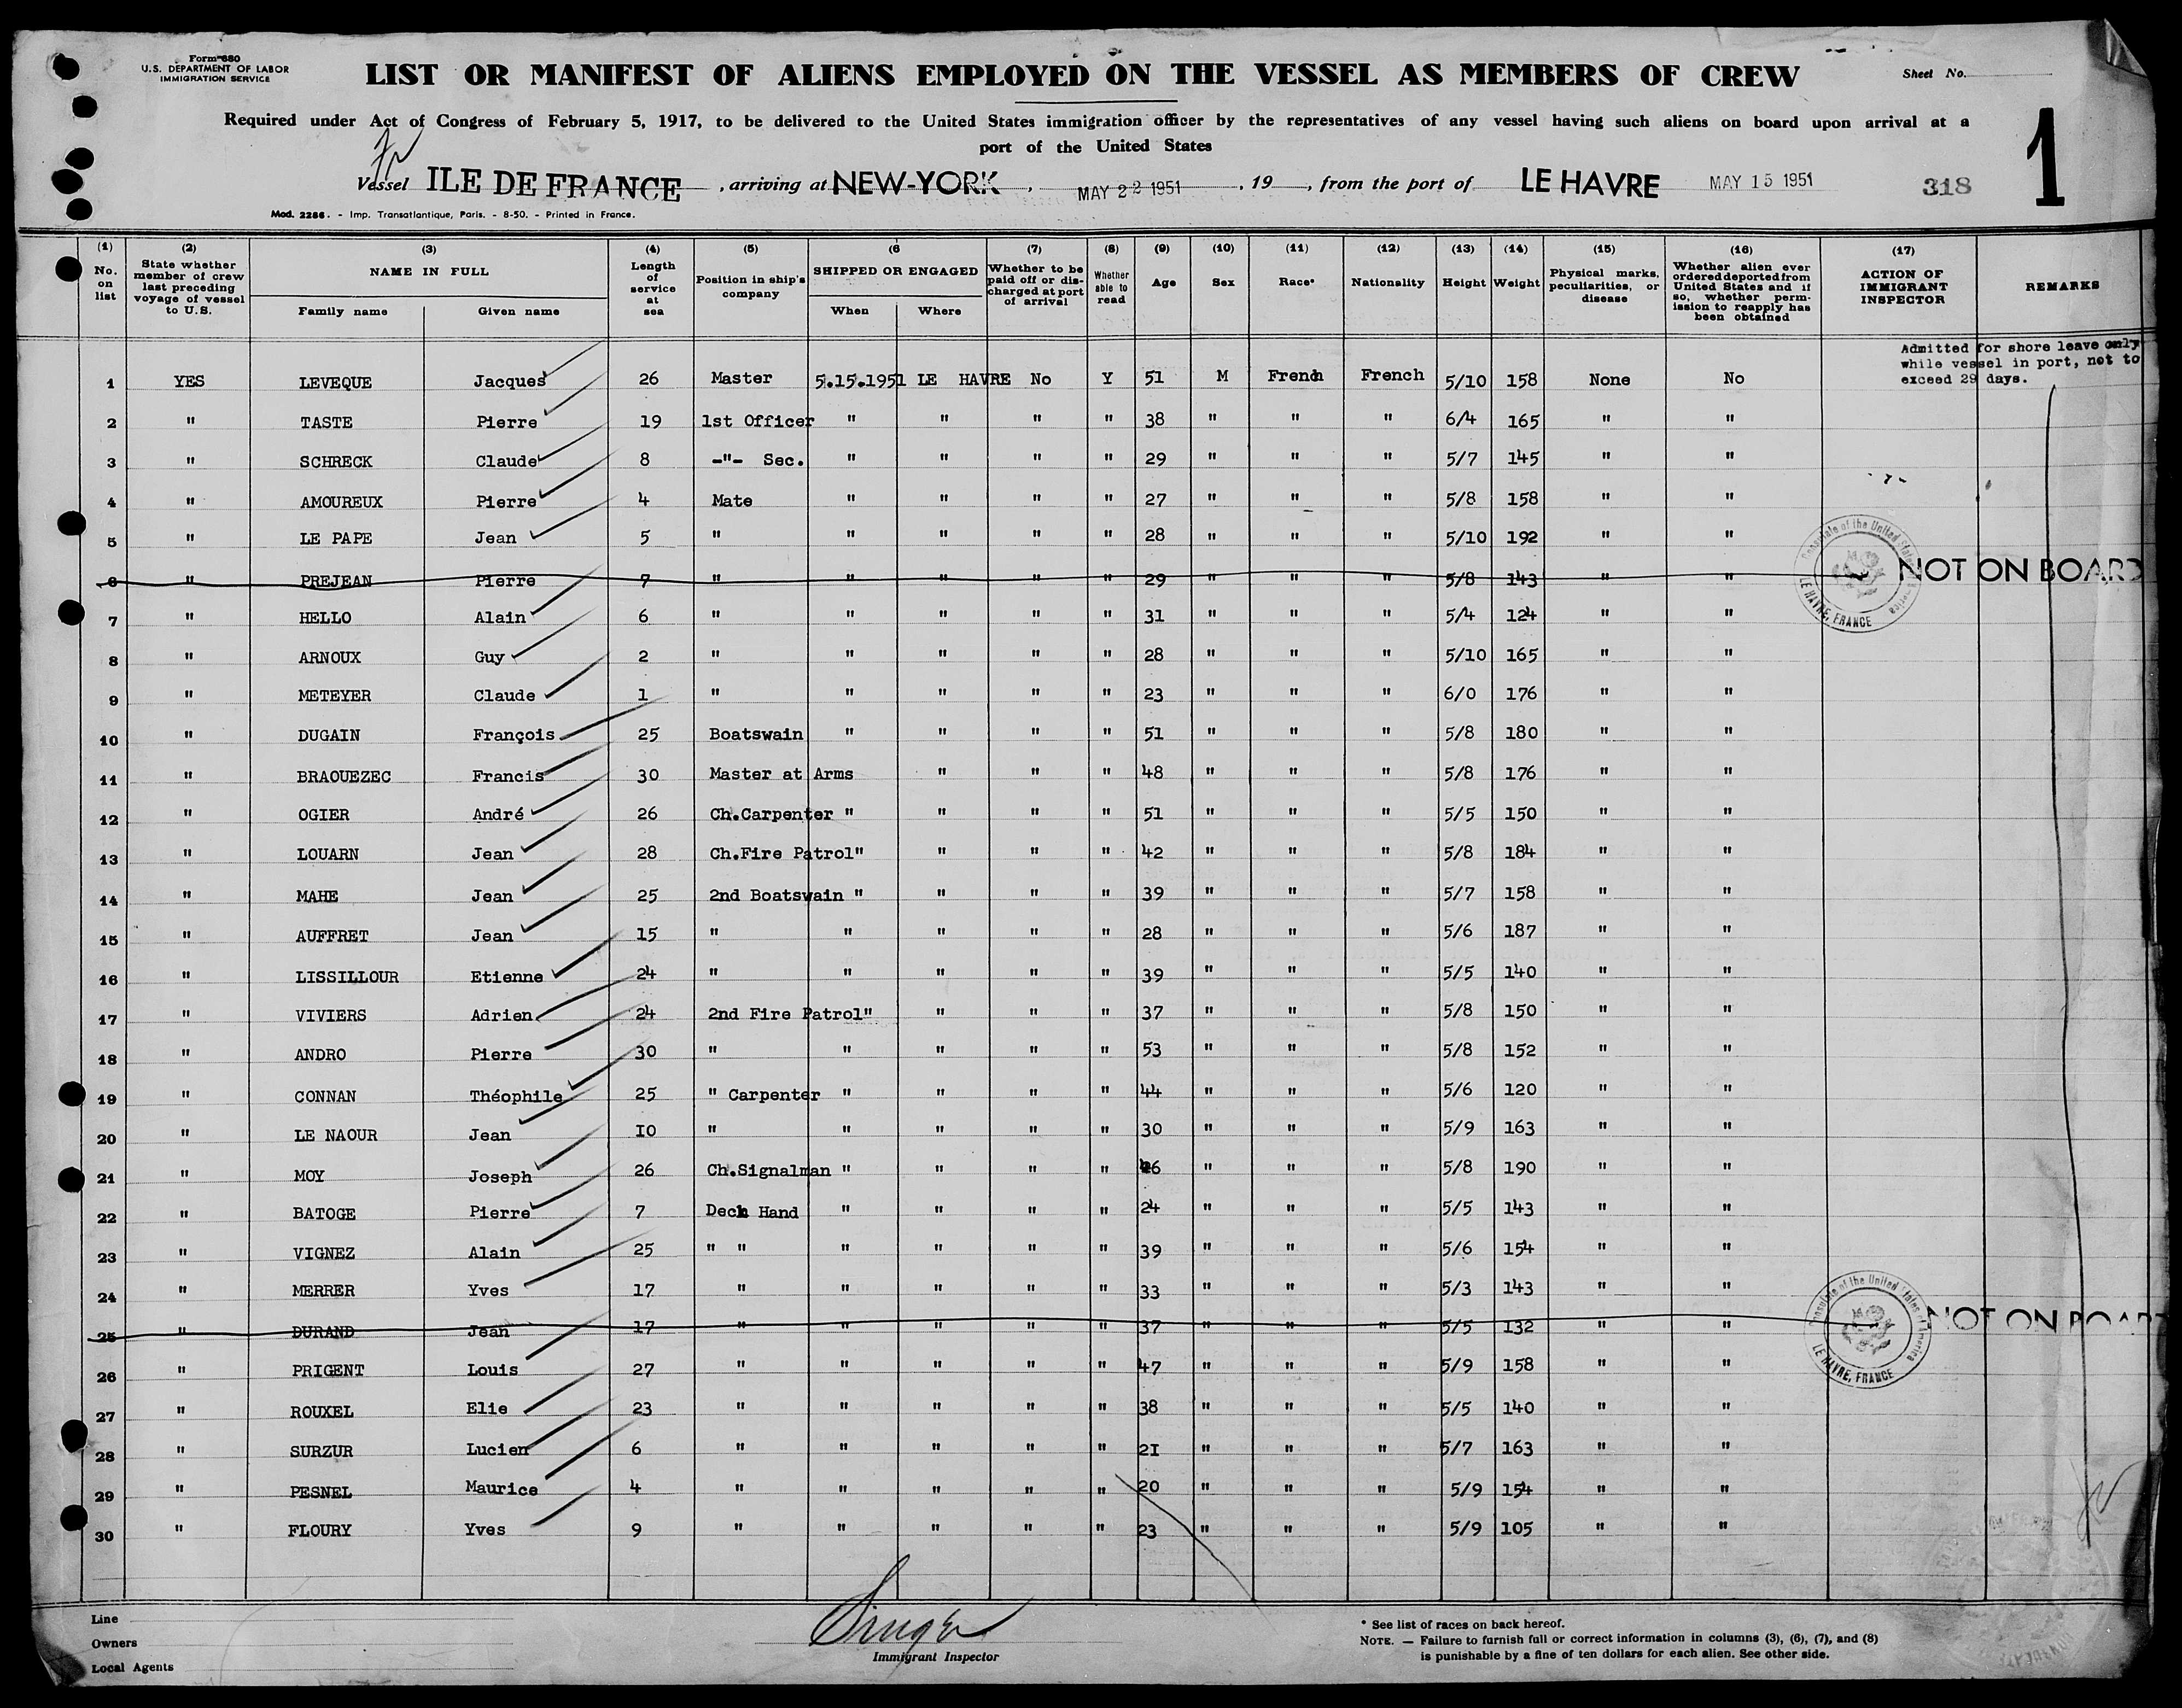 Form 680
U.S. DEPARTMENT OF LABOR
IMMIGRATION SERVICE
LIST OR MANIFEST OF ALIENS EMPLOYED ON THE VESSEL AS MEMBERS OF CREW
Sheet No.
Required under Act of Congress of February 5, 1917, to be delivered to the United States immigration officer by the representatives of any vessel having such aliens on board upon arrival at a
port of the United States
1
Vessel ILE DE FRANCE, arriving at NEW-YORK, MAY 22 1951, 19, from the port of LE HAVRE MAY 15 1951 318
Mod. 2286. - Imp. Transatlantique, Paris. - 8-50. - Printed in France.
(1) No. on list (2) State whether member of crew last preceding voyage of vessel to U.S. (3) NAME IN FULL Family name Given name (4) Length of service at sea (5) Position in ship's company (6 SHIPPED OR ENGAGED When Where (7) Whether to be paid off or discharged at port of arrival (8) Whether able to read (9) Age (10) Sex (11) Race* (12) Nationality (13) Height (14) Weight (15) Physical marks, peculiarities, or disease (16) Whether alien ever ordered deported from United States and if so, whether permission to reapply has been obtained (17) ACTION OF IMMIGRANT INSPECTOR REMARKS
Admitted for shore leave only
while vessel in port, not to
exceed 29 days.
1 YES LEVEQUE Jacques 26 Master 5.15.1951 LE HAVRE No Y 51 M French French 5/10 158 None No
2 " TASTE Pierre 19 1st Officer " " " " 38 " " " 6/4 165 " "
3 " SCHRECK Claude 8 -"- Sec. " " " " 29 " " " 5/7 145 " "
4 " AMOUREUX Pierre 4 Mate " " " " 27 " " " 5/8 158 " "
5 " LE PAPE Jean 5 " " " " " 28 " " " 5/10 192 " "
6 " PREJEAN Pierre 7 " " " " " 29 " " " 5/8 143 " " NOT ON BOARD
7 " HELLO Alain 6 " " " " " 31 " " " 5/4 124 " "
8 " ARNOUX Guy 2 " " " " " 28 " " " 5/10 165 " "
9 " METEYER Claude 1 " " " " " 23 " " " 6/0 176 " "
10 " DUGAIN François 25 Boatswain " " " " 51 " " " 5/8 180 " "
11 " BRAOUEZEC Francis 30 Master at Arms " " " 48 " " " 5/8 176 " "
12 " OGIER André 26 Ch.Carpenter " " " " 51 " " " 5/5 150 " "
13 " LOUARN Jean 28 Ch.Fire Patrol" " " " 42 " " " 5/8 184 " "
14 " MAHE Jean 25 2nd Boatswain " " " " 39 " " " 5/7 158 " "
15 " AUFFRET Jean 15 " " " " " 28 " " " 5/6 187 " "
16 " LISSILLOUR Etienne 24 " " " " " 39 " " " 5/5 140 " "
17 " VIVIERS Adrien 24 2nd Fire Patrol" " " " 37 " " " 5/8 150 " "
18 " ANDRO Pierre 30 " " " " " 53 " " " 5/8 152 " "
19 " CONNAN Théophile 25 " Carpenter " " " " 44 " " " 5/6 120 " "
20 " LE NAOUR Jean IO " " " " " 30 " " " 5/9 163 " "
21 " MOY Joseph 26 Ch.Signalman " " " " 46 " " " 5/8 190 " "
22 " BATOGE Pierre 7 Deck Hand " " " " 24 " " " 5/5 143 " "
23 " VIGNEZ Alain 25 " " " " " " 39 " " " 5/6 154 " "
24 " MERRER Yves 17 " " " " " 33 " " " 5/3 143 " "
25 " DURAND Jean 17 " " " " " 37 " " " 5/5 132 " " NOT ON BOARD
26 " PRIGENT Louis 27 " " " " " 47 " " " 5/9 158 " "
27 " ROUXEL Elie 23 " " " " " 38 " " " 5/5 140 " "
28 " SURZUR Lucien 6 " " " " " 2I " " " 5/7 163 " "
29 " PESNEL Maurice 4 " " " " " 20 " " " 5/9 154 " "
30 " FLOURY Yves 9 " " " " " 23 " " " 5/9 105 " "
Consulate of the United States of America
LE HAVRE, FRANCE
Consulate of the United States of America
LE HAVRE, FRANCE
Line
Owners
Local Agents
Singer
Immigrant Inspector
* See list of races on back hereof.
NOTE. — Failure to furnish full or correct information in columns (3), (6), (7), and (8)
is punishable by a fine of ten dollars for each alien. See other side.